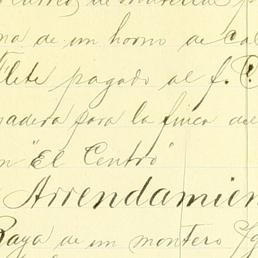 na de un horno de cal
Flete pagado al f. C
madera para la finca del
n "El Centro"
Arrendamien
Raya de un montero